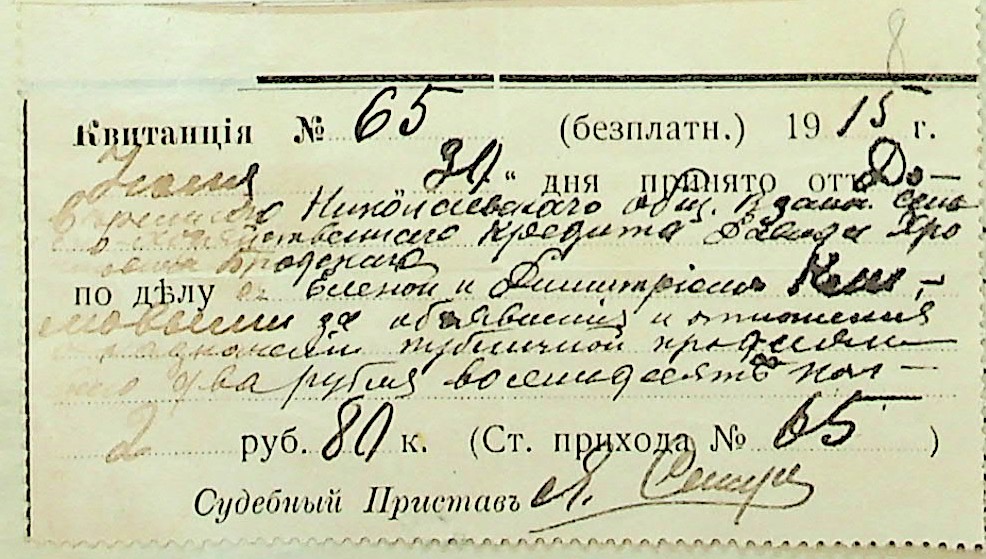 8
Квитанція № 65 (безплатн.) 1915 г.
Іюня 30 " дня принято отъ До-
вѣреннаго Николаевскаго общ. Взаим. сель
ско хозяйственнаго кредита Давида Хро
Бродскаго
по дѣлу съ Еленой и Димитріемъ Кли-
мовыми за объявленія и отношенія
о назначеніи публичной продажи
два рубля восемьдесятъ коп-
2 руб. 80 к. (Ст. прихода № 65 )
Судебный Приставъ А.